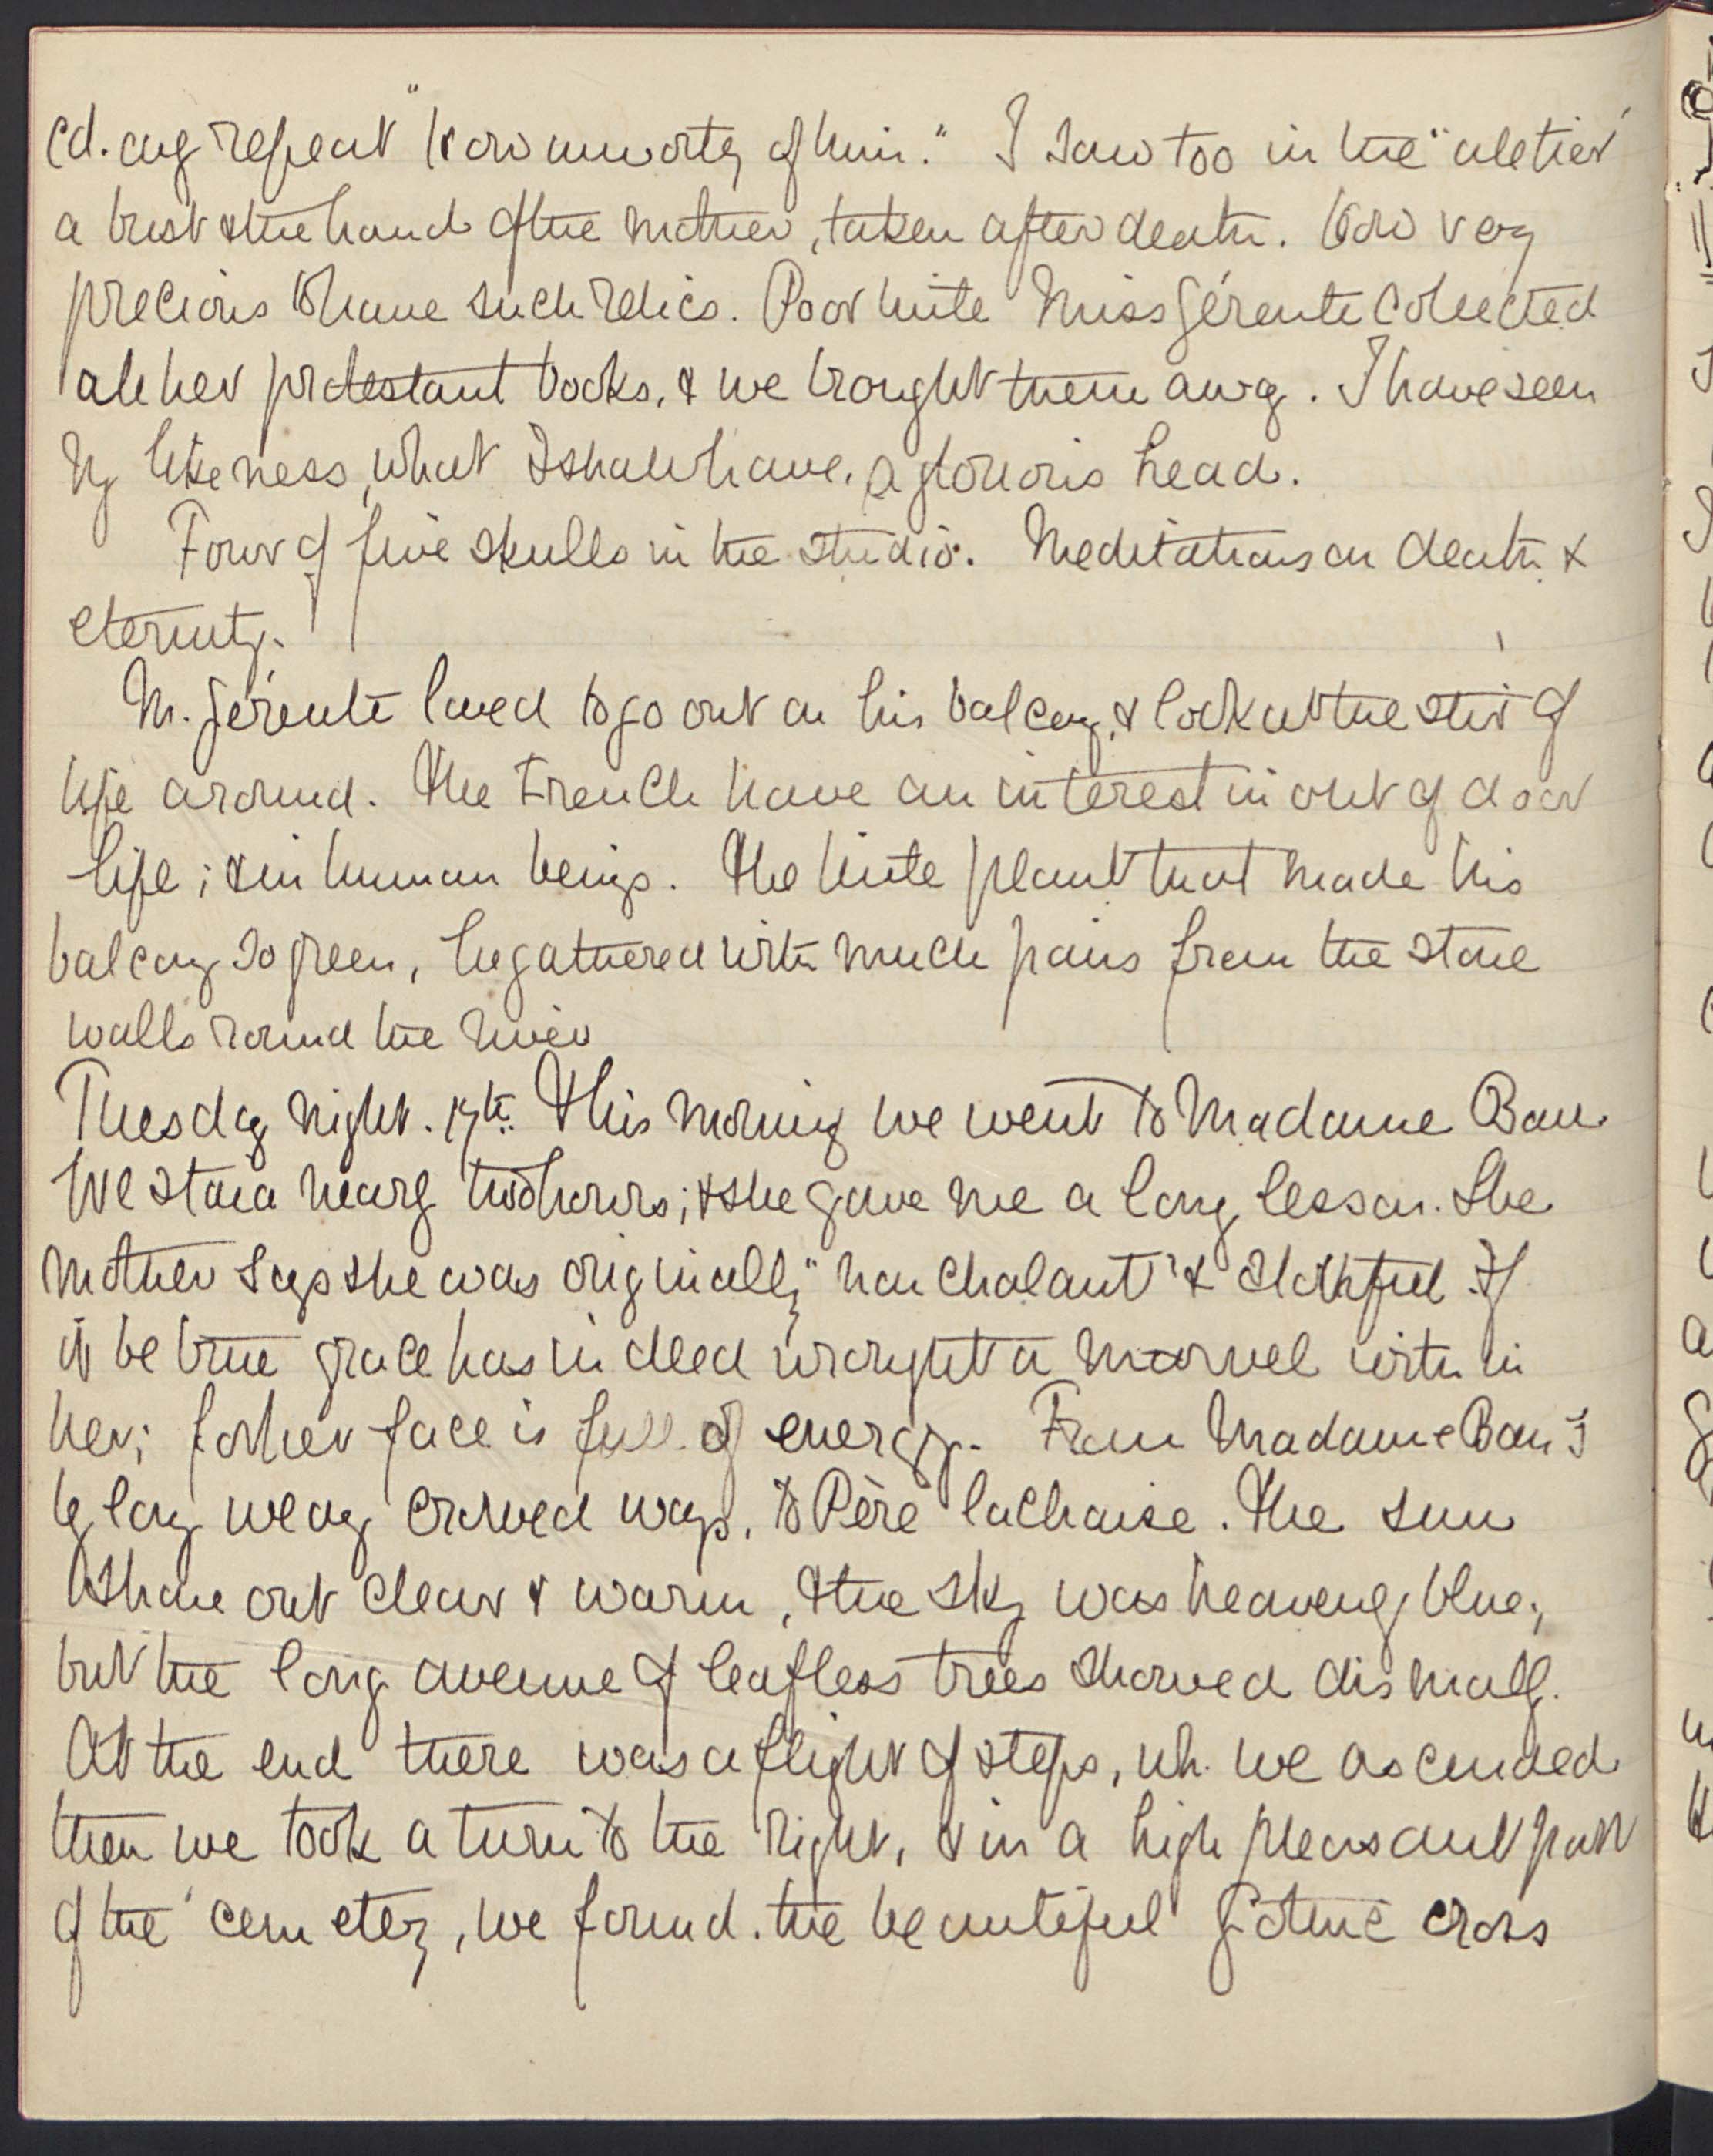 cd. only repeat "how unworthy of him." I saw too in the "aletier"
a bust & the hand of the mother, taken after death. How very
precious to have such relics. Poor little Miss Gérente collected
all her protestant books, & we brought them away. I have seen
by likeness, what I shall have, a glorious head.
Four of five skulls in the studio. Meditations on death &
eternity.
M. Gérente loved to go out on his balcony, & look at the stir of
life around. The French have an interest in out of door
life; & in human beings. The little plant that made his
balcony so green, he gathered with much pains from the stone
walls round the river
Tuesday night. 17th. This morning we went to Madame Bau
We staid nearly two hours; & she gave me a long lesson. The
mother says she was originally "nonchalant" & slothful. If
it be true grace has indeed wrought a marvel within
her; for her face is full of energy. From Madame Bau's
by long weary crowded ways, to Père la Chaise. The sun
shone out clear & warm, & the sky was heavenly blue;
but the long avenue of leafless trees showed dismally.
At the end there was a flight of steps, wh. we ascended
then we took a turn to the right, & in a high pleasant part
of the cemetery, we found the beautiful Gothic cross